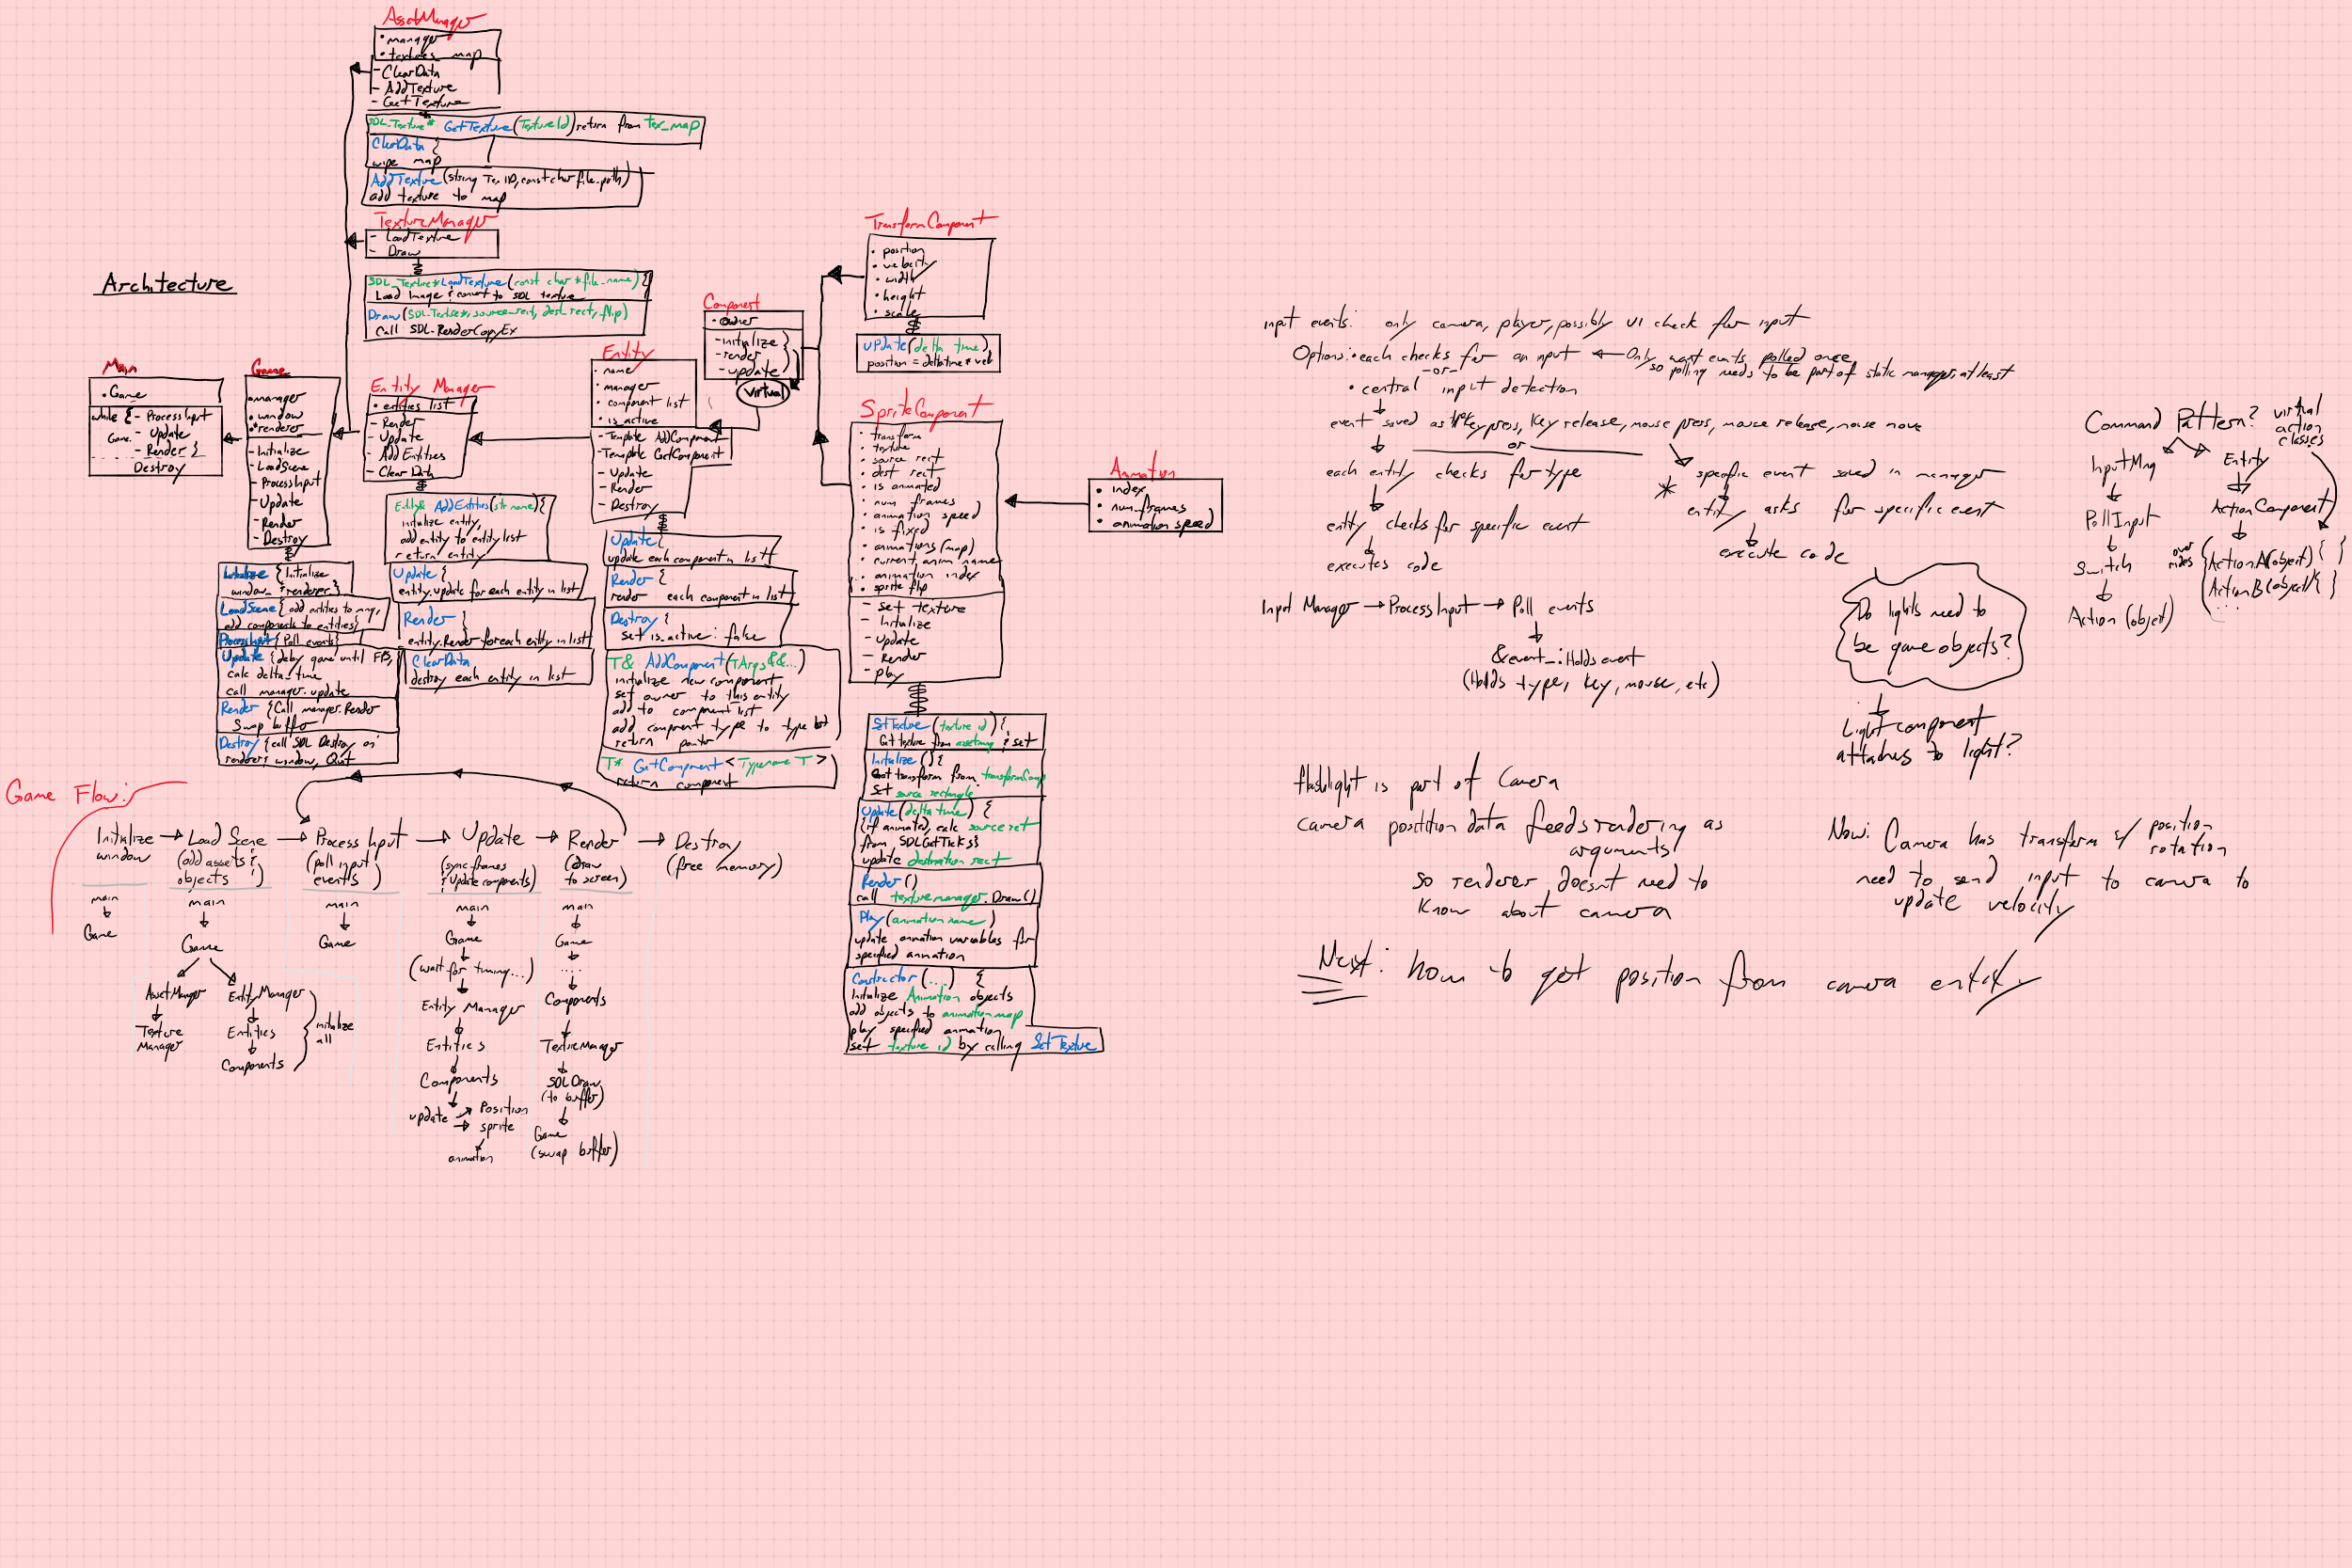 Architecture
AssetManager
• manager
• textures map
- ClearData
- AddTexture
- GetTexture
SDL_Texture* GetTexture(TextureId) return from tex_map
ClearData {
wipe map
AddTexture(string Tex ID, const char file_path)
add texture to map
TextureManager
- LoadTexture
- Draw
SDL_Texture* LoadTexture(const char *file_name) {
Load Image & convert to SDL texture
Draw(SDL_Texture*, source_rect, dest_rect, flip)
Call SDL_RenderCopyEx
Main
• Game
while { - ProcessInput
Game. - Update
- Render }
Destroy
Game
• manager
• window
• *renderer
- Initialize
- LoadScene
- ProcessInput
- Update
- Render
- Destroy
Initialize { Initialize
window_ & renderer }
LoadScene { add entities to mng,
add components to entities}
ProcessInput { Poll events }
Update { delay game until FPS,
calc delta_time
call manager.update
Render { Call manager.Render
Swap buffer
Destroy { call SDL Destroy on
renderer, window, Quit
Entity Manager
• entities list
- Render
- Update
- Add Entities
- Clear Data
Entity& AddEntities(str name) {
initialize entity,
add entity to entity list
return entity
Update {
entity.update for each entity in list
Render }
entity.Render foreach entity in list
ClearData
destroy each entity in list
Entity
• name
• manager
• component list
• is_active
- Template AddComponent
- Template GetComponent
- Update
- Render
- Destroy
Update {
update each component in list
Render {
render each component in list
Destroy {
set is_active: false
T& AddComponent(TArgs&&...)
initialize new component
set owner to this entity
add to component list
add component type to type list
return pointer
T* GetComponent<Typename T>
return component
Component
• owner
- initialize }
- render
- update )
virtual
TransformComponent
• position
• velocity
• width
• height
• scale
Update(delta time)
position = deltatime * vel
SpriteComponent
• transform
• texture
• source rect
• dest rect
• is animated
• num frames
• animation speed
• is fixed
• animations (map)
• current_anim name
• animation index
• sprite flip
- set texture
- Initialize
- Update
- Render
- play
SetTexture(texture id) {
Get texture from assetmng & set
Initialize() {
Get transform from transformComp
Set source rectangle
Update(delta time) {
(if animated, calc source rect
from SDLGetTicks)
update destination rect
Render()
call texturemanager.Draw()
Play(animation name)
update animation variables for
specified animation
Constructor(...) {
Initialize Animation objects
add objects to animation map
play specified animation
set texture id by calling SetTexture
Animation
• index
• num_frames
• animation speed
Game Flow:
Initialize → Load Scene → Process Input → Update → Render → Destroy
window
(add assets &
objects !)
(poll input
events )
(sync frames
& Update components)
(draw
to screen)
(free memory)
main
Game
main
Game
AssetManager
Texture
Manager
EntityManager
Entities
Components
initialize
all
main
Game
main
Game
(wait for timing...)
Entity Manager
Entities
Components
update → Position
→ sprite
animation
main
Game
....
Components
TextureManager
SDLDraw
(to buffer)
Game
(swap buffer)
input events: only camera, player, possibly UI check for input
Options: • each checks for an input ← Only want events polled once,
so polling needs to be part of static manager, at least
-or-
• central input detection
event saved as keypress, key release, mouse press, mouse release, mouse move
or
each entity checks for type
entity checks for specific event
executes code
* specific event saved in manager
entity asks for specific event
execute code
Input Manager → ProcessInput → Poll events
&event_: Holds event
(Holds type, key, mouse, etc)
Command Pattern? virtual
action
classes
InputMng
PollInput
Switch
Action (object)
Entity
ActionComponent
over
rides
{ActionA(object) { }
ActionB(object) { }
...
Do lights need to
be game objects?
Light component
attaches to light?
flashlight is part of Camera
camera position data feeds rendering as
arguments
so renderer doesnt need to
know about camera
Now: Camera has transform w/ position
rotation
need to send input to camera to
update velocity
Next: how to get position from camera entity